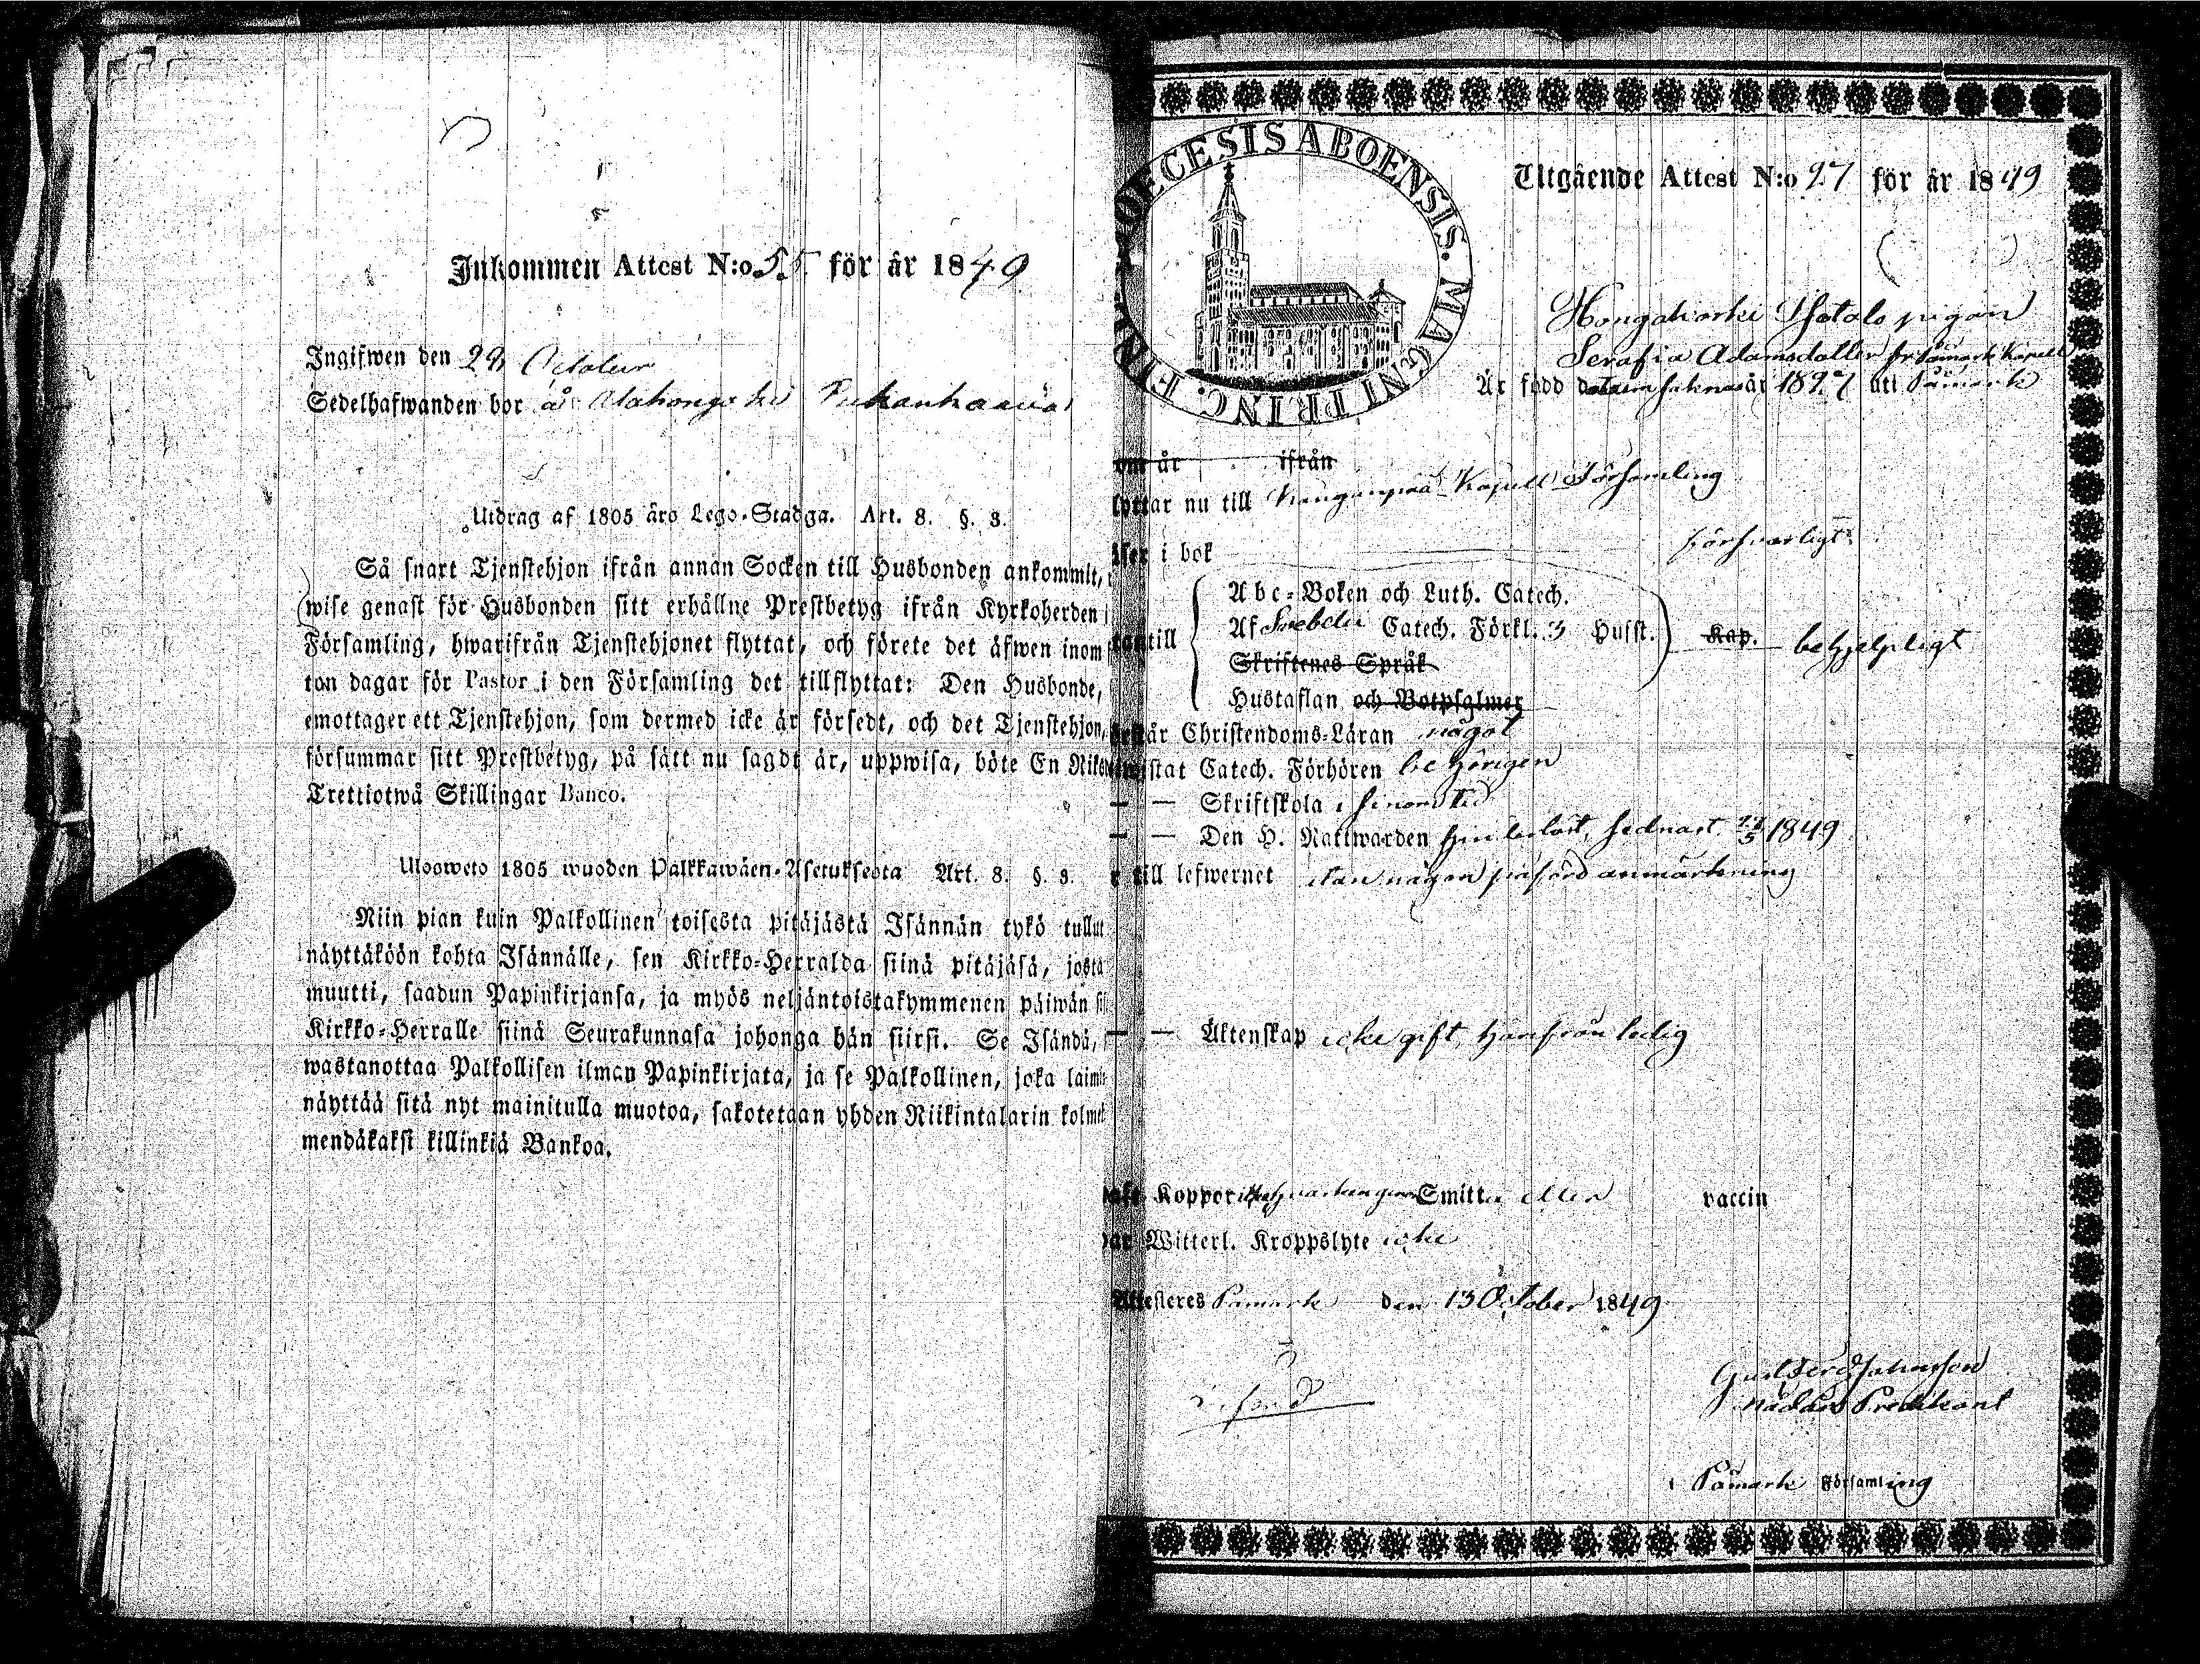 Inkommen Attest N:o 55 för år 1849
Ingifwen den 29 October
Sedelhafwanden bor å
Utdrag af 1805 års Lego-Stadga. Art. 8. §. 3.
Så snart Tjenstehjon ifrån annan Socken till Husbonden ankommit,
wise genast för Husbonden sitt erhållne Prestbetyg ifrån Kyrkoherden
Församling, hwarifrån Tjenstehjonet flyttat, och förete det äfwen inom
ton dagar för Pastor i den Församling det tillflyttat: Den Husbonde,
emottager ett Tjenstehjon, som dermed icke är försedt, och det Tjenstehjon,
försummar sitt Prestbetyg, på sätt nu sagdt är, uppwisa, böte En Riks
Trettiotwå Skillingar Banco.
Ulosweto 1805 wuoden Palkkawäen-Asetuksesta Art. 8. §. 3.
Niin pian kuin Palkollinen toisesta pitäjästä Isännän tykö tullut
näyttäköön kohta Isännälle, sen Kirkko-Herralda siinä pitäjäsä, josta
muutti, saadun Papinkirjansa, ja myös neljäntoistakymmenen päiwän si
Kirkko-Herralle siinä Seurakunnasa johonga hän siirsi. Se Isändä,
wastanottaa Palkollisen ilman Papinkirjata, ja se Palkollinen, joka laimi
näyttää sitä nyt mainitulla muotoa, sakotetaan yhden Riikintalarin kolme
mendäkaksi killinkiä Bankoa.
DIOECESIS ABOENSIS. MAGNI PRINC. FINL
Utgående Attest N:o 27 för år 1849
pigan
Serafia Adamsdotter fr Påmark Kapell
Är född år 1827 uti Påmark
om år ifrån
lyttar nu till Kangunpää Kapell Församling
äser i bok försvarligt
Abc-Boken och Luth. Catech.
Af Svebelii Catech. Förkl. 3 Husst.
utantill Kap. behjelpligt
Skriftenes Språk
Hustaflan och Botpsalmer
örstår Christendoms-Läran något
Catech. Förhören behörigen
— — Skriftskola i sinom tid
— — Den H. Nattwarden hinderlöst, sednast 1849
r till lefwernet utan någon påförd anmärkning
— — Äktenskap icke gift, hänifrån ledig
haft Koppor Smitt eller vaccin
har Witterl. Kroppslyte icke
Attesteres Påmark den 13 October 1849
Predikant
i Påmark Församling